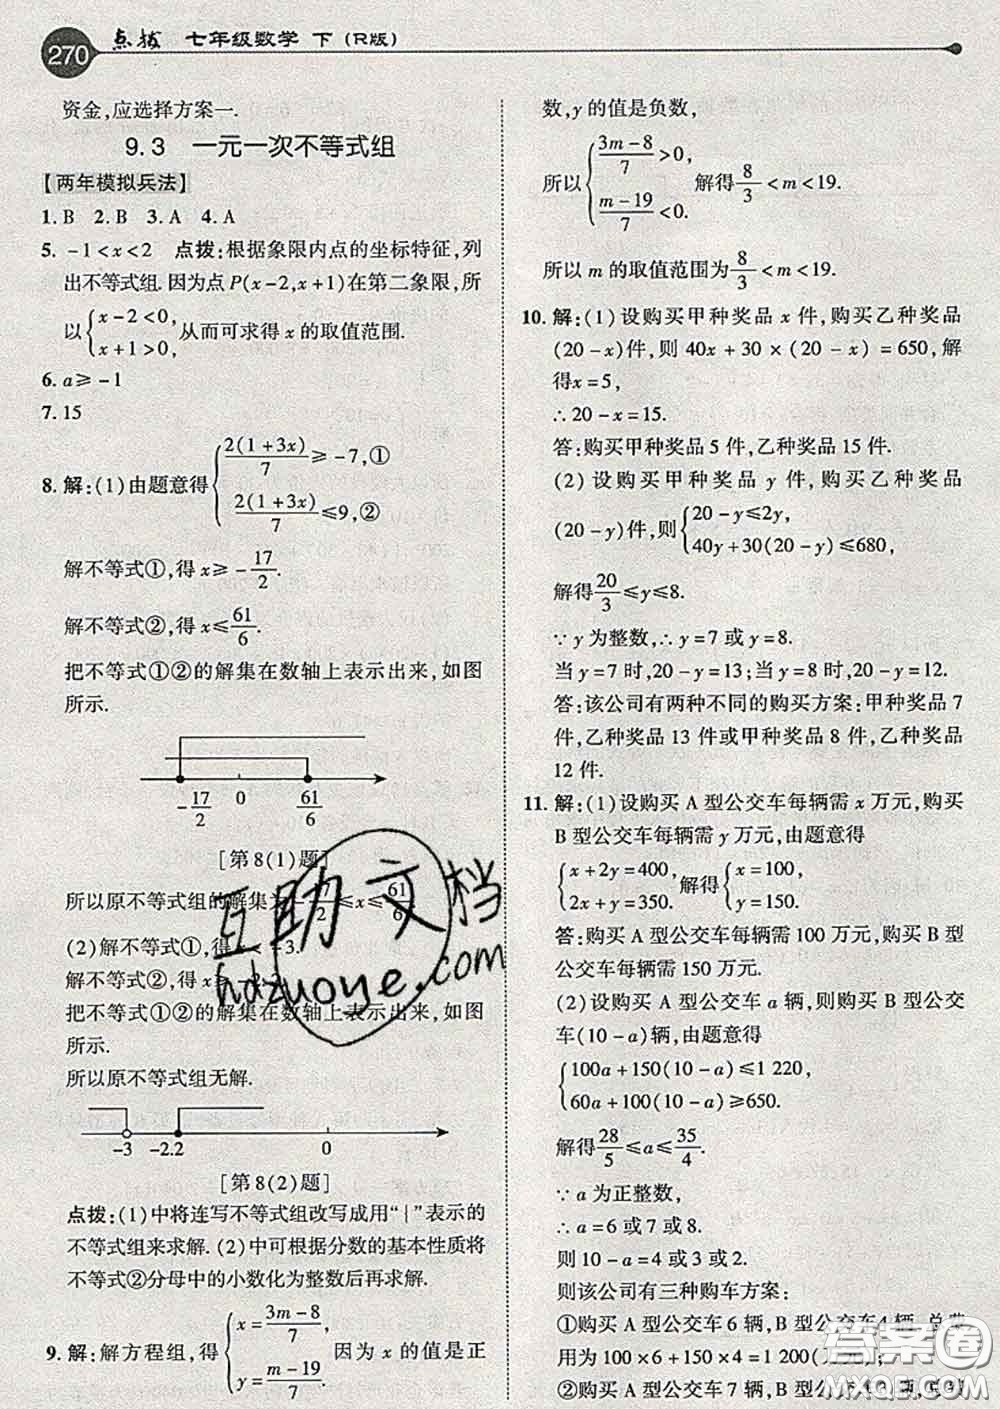 270 点拨 七年级数学 下（R版）
资金,应选择方案一.
9.3 一元一次不等式组
【两年模拟兵法】
1. B 2. B 3. A 4. A
5. -1<x<2 点拨:根据象限内点的坐标特征,列
出不等式组.因为点 P(x-2,x+1)在第二象限,所
以{x-2<0, x+1>0} 从而可求得 x 的取值范围.
6. a≥-1
7. 15
8. 解:(1)由题意得{2(1+3x)/7≥-7,① 2(1+3x)/7≤9,②
解不等式①,得 x≥-17/2.
解不等式②,得 x≤61/6.
把不等式①②的解集在数轴上表示出来,如图
所示.
-17/2 0 61/6
[第8(1)题]
所以原不等式组的解集为-17/2≤x≤61/6.
(2)解不等式①,得 x<-3.
解不等式②,得 x≥-2.2.
把不等式①②的解集在数轴上表示出来,如图
所示.
所以原不等式组无解.
-3 -2.2 0
[第8(2)题]
点拨:(1)中将连写不等式组改写成用“{”表示的
不等式组来求解.(2)中可根据分数的基本性质将
不等式②分母中的小数化为整数后再求解.
9. 解:解方程组,得{x=(3m-8)/7, y=(m-19)/7. 因为 x 的值是正
数,y 的值是负数,
所以{(3m-8)/7>0, (m-19)/7<0. 解得8/3<m<19.
所以 m 的取值范围为8/3<m<19.
10. 解:(1)设购买甲种奖品 x 件,购买乙种奖品
(20-x)件,则 40x+30×(20-x)=650,解
得x=5,
∴20-x=15.
答:购买甲种奖品 5 件,乙种奖品 15 件.
(2)设购买甲种奖品 y 件,购买乙种奖品
(20-y)件,则{20-y≤2y, 40y+30(20-y)≤680,
解得20/3≤y≤8.
∵y 为整数,∴y=7 或 y=8.
当 y=7 时,20-y=13;当 y=8 时,20-y=12.
答:该公司有两种不同的购买方案:甲种奖品 7
件,乙种奖品 13 件或甲种奖品 8 件,乙种奖品
12 件.
11. 解:(1)设购买 A 型公交车每辆需 x 万元,购买
B 型公交车每辆需 y 万元,由题意得
{x+2y=400, 2x+y=350. 解得{x=100, y=150.
答:购买 A 型公交车每辆需 100 万元,购买 B 型
公交车每辆需 150 万元.
(2)设购买 A 型公交车 a 辆,则购买 B 型公交
车(10-a)辆,由题意得
{100a+150(10-a)≤1 220, 60a+100(10-a)≥650.
解得28/5≤a≤35/4.
∵a 为正整数,
∴a=6或7或8.
则10-a=4 或 3 或 2.
则该公司有三种购车方案:
①购买 A 型公交车 6 辆,B 型公交车 4 辆,总费
用为 100×6+150×4=1 200(万元);
②购买 A 型公交车 7 辆,B 型公交车 3 辆,总费
互助文档
hdzuoye.com
答案圈
MXQE.COM